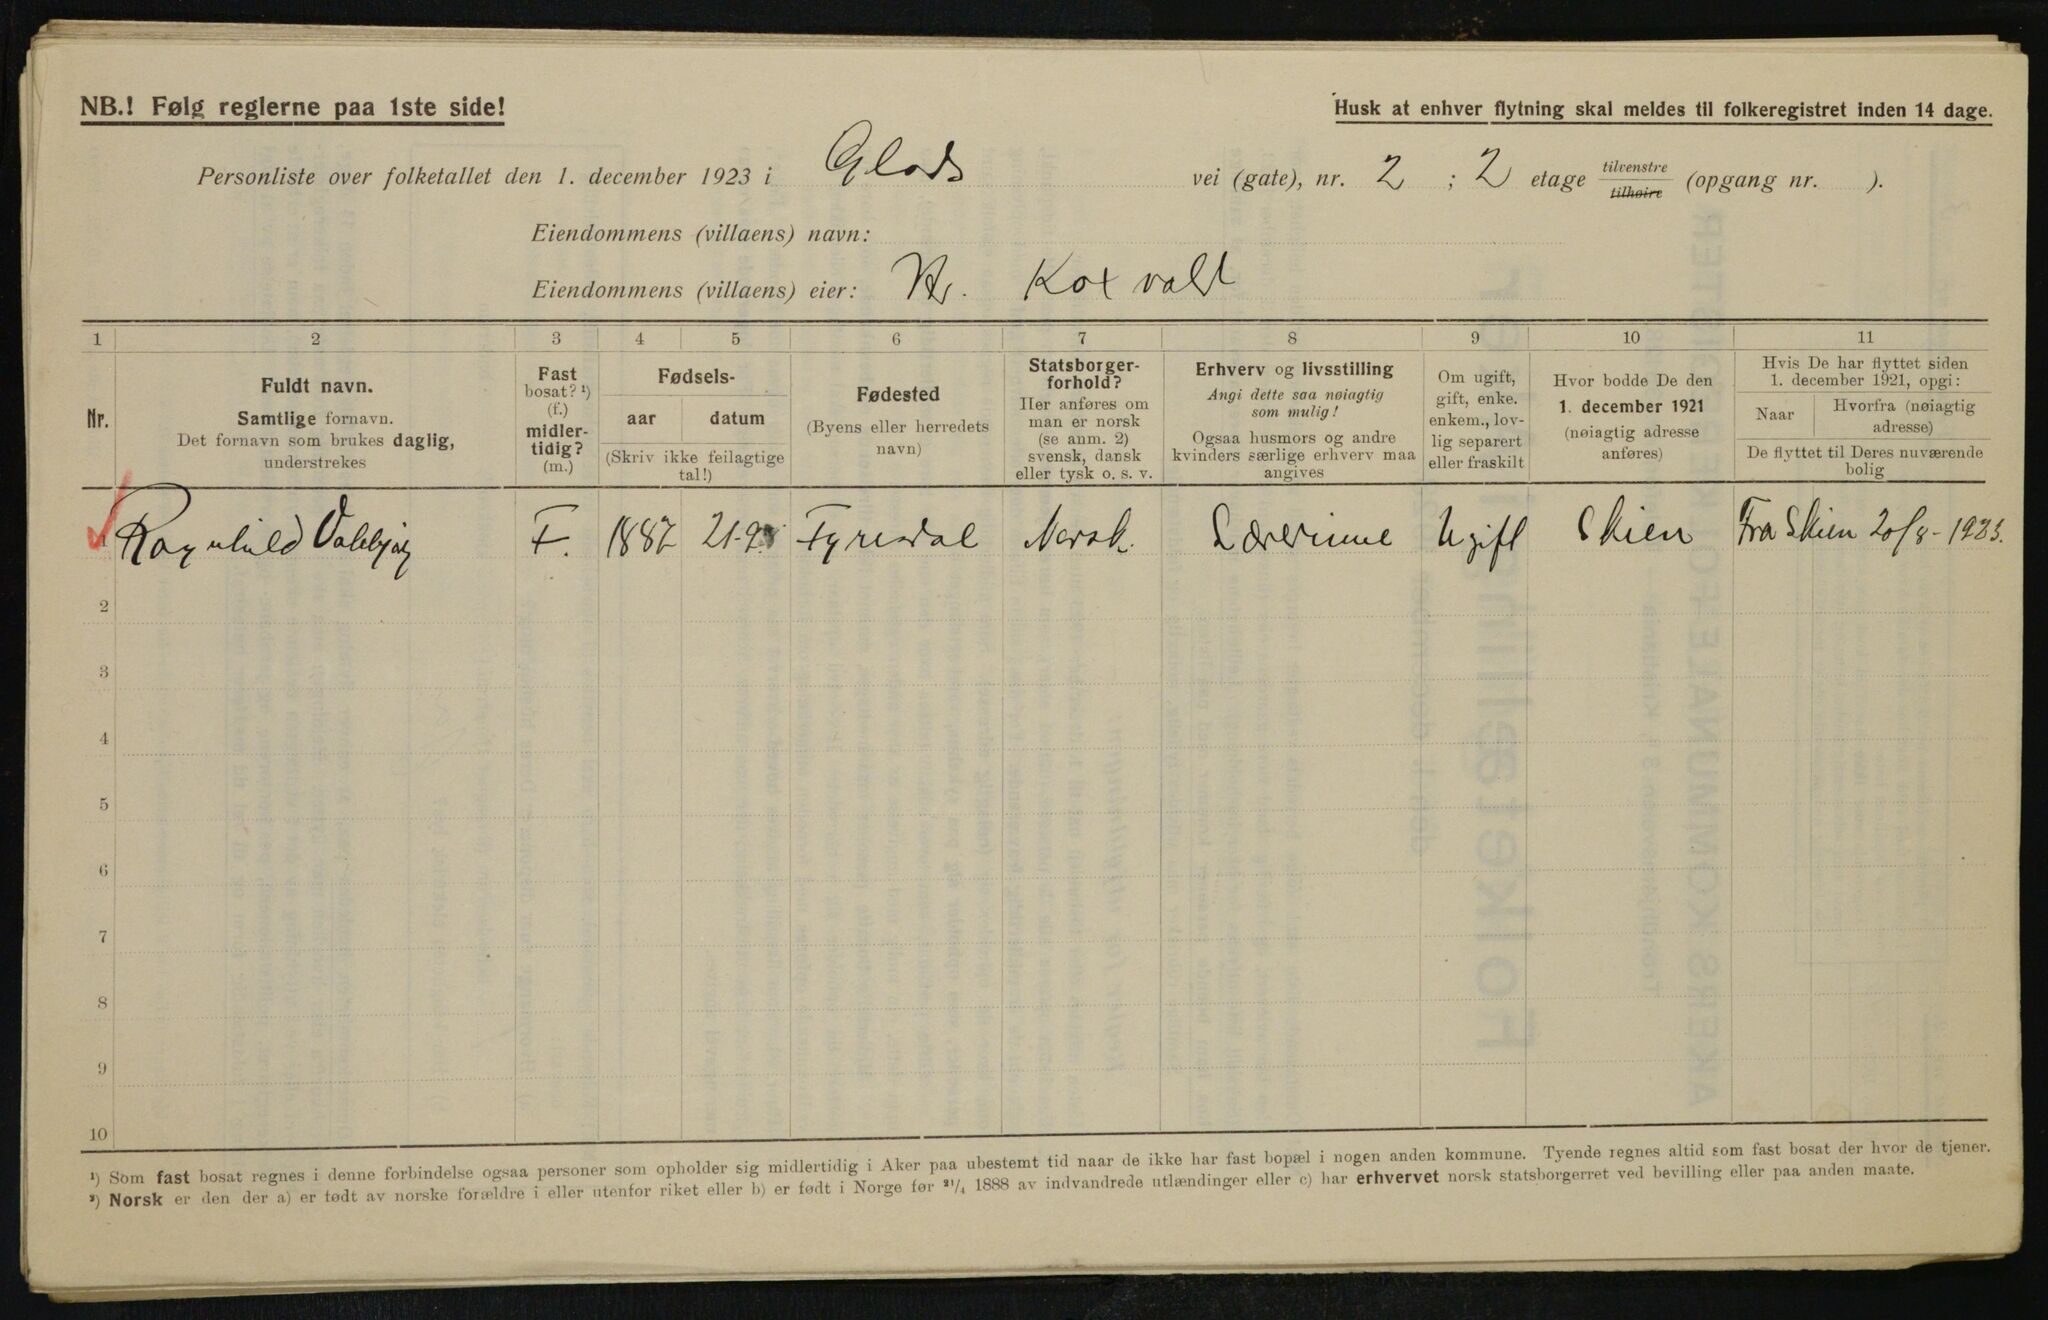 NB.! Følg reglerne paa 1ste side!
Husk at enhver flytning skal meldes til folkeregistret inden 14 dage.
Personliste over folketallet den 1. december 1923 i Glads vei (gate), nr. 2 ; 2 etage tilvenstre tilhøire (opgang nr. ).
Eiendommens (villaens) navn:
Eiendommens (villaens) eier: Hr. Koxvold
1 2 3 4 5 6 7 8 9 10 11
Nr.
Fuldt navn.
Samtlige fornavn.
Det fornavn som brukes daglig,
understrekes
Fast
bosat? ¹)
(f.)
midler-
tidig?
(m.)
Fødsels-
aar datum
(Skriv ikke feilagtige
tal!)
Fødested
(Byens eller herredets
navn)
Statsborger-
forhold?
Her anføres om
man er norsk
(se anm. 2)
svensk, dansk
eller tysk o. s. v.
Erhverv og livsstilling
Angi dette saa nøiagtig
som mulig!
Ogsaa husmors og andre
kvinders særlige erhverv maa
angives
Om ugift,
gift, enke.
enkem., lov-
lig separert
eller fraskilt
Hvor bodde De den
1. december 1921
(nøiagtig adresse
anføres)
Hvis De har flyttet siden
1. december 1921, opgi:
Naar
Hvorfra (nøiagtig
adresse)
De flyttet til Deres nuværende
bolig
1 Ragnhild F. 1887 21-9 Fyresdal Norsk. Lærerinne Ugift Skien Fra Skien 20/8-1923.
2
3
4
5
6
7
8
9
10
¹) Som fast bosat regnes i denne forbindelse ogsaa personer som opholder sig midlertidig i Aker paa ubestemt tid naar de ikke har fast bopæl i nogen anden kommune. Tyende regnes altid som fast bosat der hvor de tjener.
²) Norsk er den der a) er født av norske forældre i eller utenfor riket eller b) er født i Norge før ²¹/₄ 1888 av indvandrede utlændinger eller c) har erhvervet norsk statsborgerret ved bevilling eller paa anden maate.